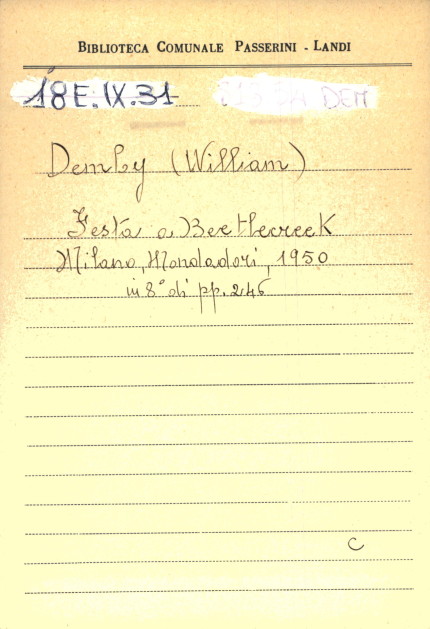 BIBLIOTECA COMUNALE PASSERINI - LANDI
18E.IX.31 DEM
Demby (William)
Festa a Beetlecreek
Milano, Mondadori, 1950
in 8° di pp. 246
C